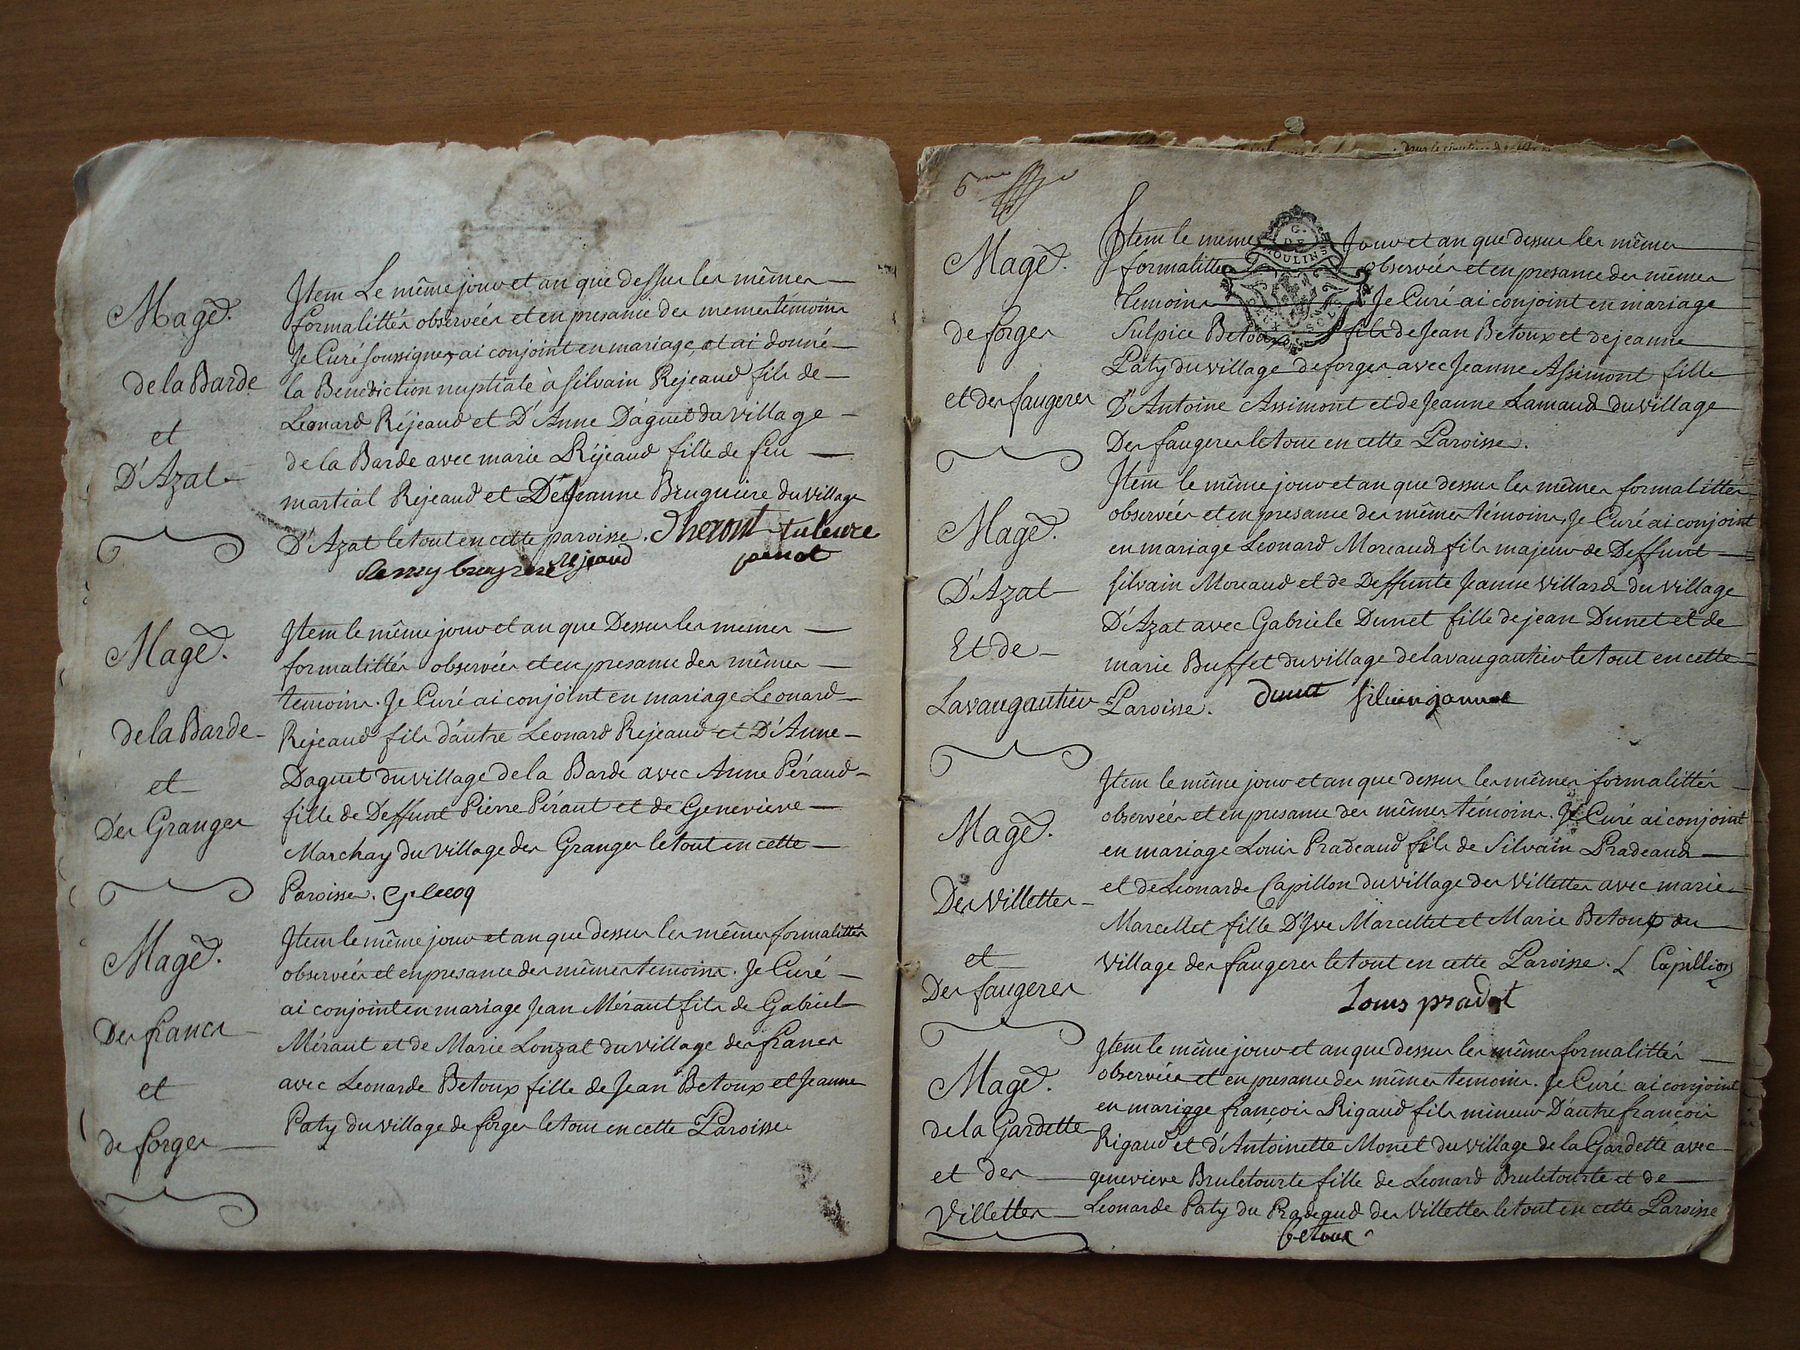 Magẽ.
de la Barde
et
D'Azat
Item Le même jour et an que dessus les mêmes
formalittés observées et en presance des memes temoins
Je Curé soussigner, ai conjoint en mariage, et ai donné
la Benediction nuptiale à Silvain Rejeaud fils de
Leonard Rejeaud et D'Anne Daguet du village
de la Barde avec marie Rejeaud fille de feu
martial Rejeaud et De Jeanne Bruguiere du village
D'Azat le tout en cette paroisse.
Rejeaud
Magẽ.
de la Barde
et
Des Granges
Item le même jour et an que Dessus les memes
formalittés observées et en presance des mêmes
temoins. Je Curé ai conjoint en mariage Leonard
Rejeaud fils d'autre Leonard Rejeaud et D'Anne
Daguet du village de la Barde avec Anne Péraud
fille de Deffunt Pierre Péraut et de Genevieve
Marchay du village des Granges le tout en cette
Paroisse. G lecoq
Magẽ.
Des francs
et
de forges
Item le même jour et an que dessus les mêmes formalittés
observées et en presance des mêmes temoins. Je Curé
ai conjoint en mariage Jean Méraut fils de Gabriel
Méraut et de Marie Lonzat du village des francs
avec Leonarde Betoux fille de Jean Betoux et Jeanne
Paty du village de forges le tout en cette Paroisse
6me
Magẽ.
de forges
et des faugeres
G.
DE
MOULINS
Item le meme Jour et an que dessus les mêmes
formalittés observées et en presance des mêmes
temoins Je Curé ai conjoint en mariage
Sulpice Betoux fils de Jean Betoux et de jeanne
Paty du village de forges avec Jeanne Assimont fille
D'Antoine Assimont et de Jeanne Lamaud du village
Des faugeres le tout en cette Paroisse.
Magẽ.
D'Azat
Et de
Lavaugautier
Item le même jour et an que dessus les mêmes formalittés
observées et en presance des mêmes temoins, Je Curé ai conjoint
en mariage Leonard Moreaud fils majeur de Deffunt
Silvain Moreaud et de Deffunte Jeanne Villard du village
D'Azat avec Gabriele Dunet fille de jean Dunet et de
marie Buffet du village de lavaugautier le tout en cette
Paroisse. dunet silvin jannot
Magẽ.
Des Villettes
et
Des faugeres
Item le même jour et an que dessus les mêmes formalittés
observées et en presance des mêmes témoins. Je Curé ai conjoint
en mariage Louis Pradeaud fils de Silvain Pradeaud
et de Leonarde Capillon du village des Villettes avec marie
Marcellet fille D'Yve Marcellet et Marie Betoux du
village des faugeres le tout en cette Paroisse. L Capillion
Louis pradot
Magẽ.
de la Gardette
et des
Villettes
Item le même jour et an que dessus les mêmes formalittés
observées et en presance des mêmes temoins. Je Curé ai conjoint
en mariage françois Rigaud fils mineur D'autre françois
Rigaud et d'Antoinette Monet du village de la Gardette avec
genevieve Bruletourte fille de Leonard Bruletourte et de
Leonarde Paty du Radegud des Villettes le tout en cette Paroisse
betoux